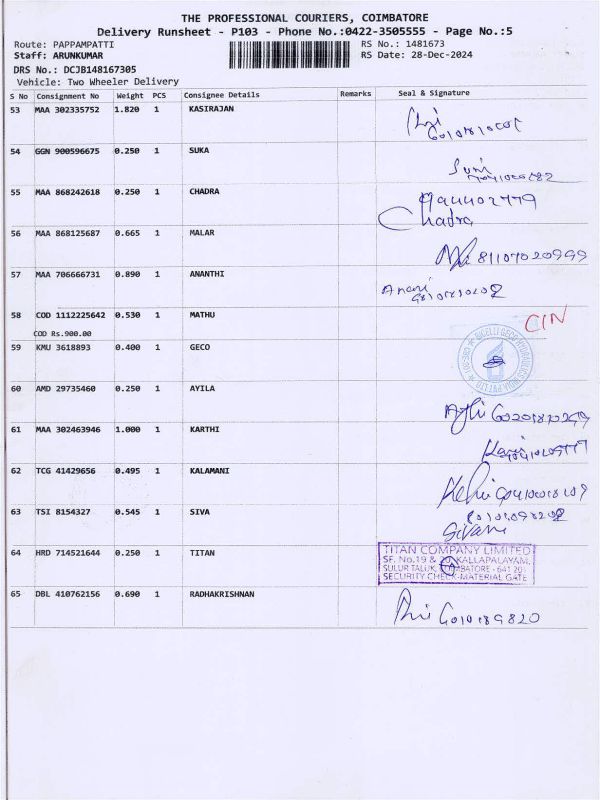 THE PROFESSIONAL COURIERS, COIMBATORE
Delivery Runsheet - P103 - Phone No.:0422-3505555 - Page No.:5
Route: PAPPAMPATTI RS No.: 1481673
Staff: ARUNKUMAR RS Date: 28-Dec-2024
DRS No.: DCJB148167305
Vehicle: Two Wheeler Delivery
S No Consignment No Weight PCS Consignee Details Remarks Seal & Signature
53 MAA 302335752 1.820 1 KASIRAJAN
54 GGN 900596675 0.250 1 SUKA
55 MAA 868242618 0.250 1 CHADRA
Chadra
56 MAA 868125687 0.665 1 MALAR
81107020999
57 MAA 706666731 0.890 1 ANANTHI
58 COD 1112225642 0.530 1 MATHU
CIN
COD Rs.900.00
59 KMU 3618893 0.400 1 GECO
60 AMD 29735460 0.250 1 AYILA
61 MAA 302463946 1.000 1 KARTHI
62 TCG 41429656 0.495 1 KALAMANI
63 TSI 8154327 0.545 1 SIVA
64 HRD 714521644 0.250 1 TITAN
TITAN COMPANY LIMITED
SF. No.19 & KALLAPALAYAM,
SULUR TALUK, COIMBATORE - 641 201
SECURITY CHECK-MATERIAL GATE
65 DBL 410762156 0.690 1 RADHAKRISHNAN